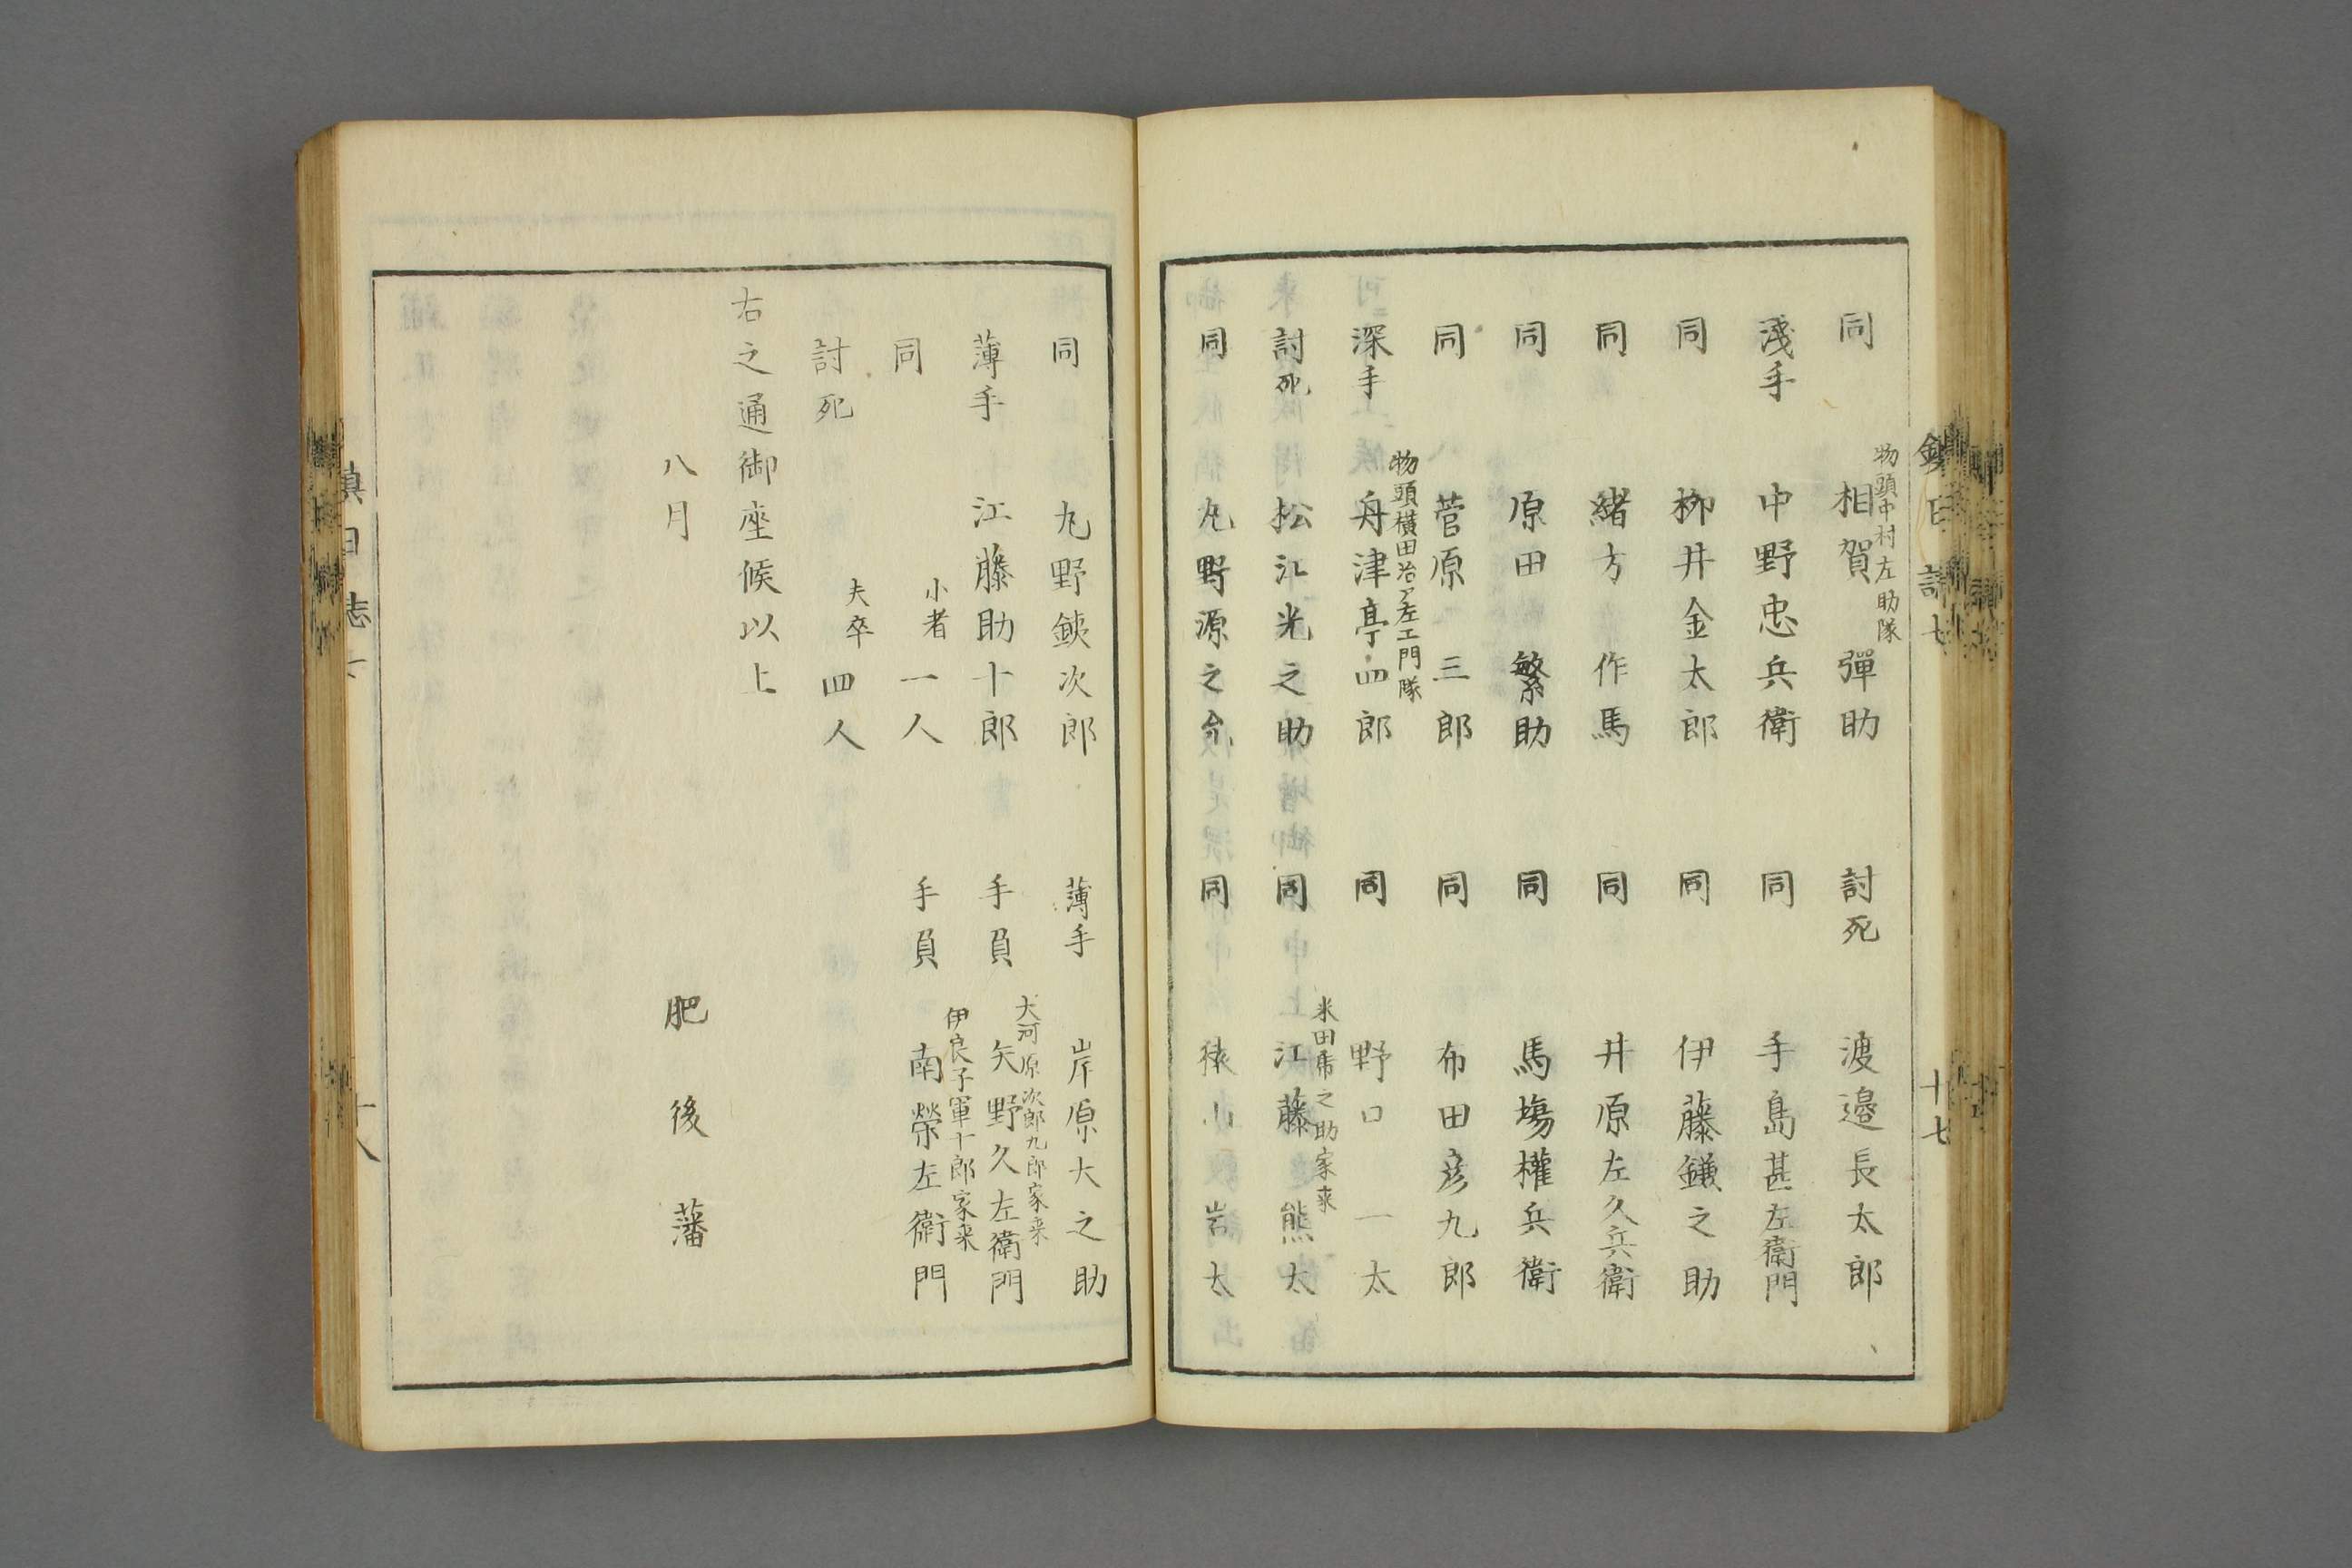 物頭中村左助隊
同 相賀彈助 討死 渡邉長太郎
淺手 中野忠兵衛 同 手島甚左衛門
同 栁井金太郎 同 伊藤鎌之助
同 緒方作馬 同 井原左久兵衛
同 原田繁助 同 馬塲權兵衛
同 菅原三郎 同 布田彦九郎
物頭横田治左エ門隊
深手 舟津亭四郎 同 野口一太
米田席之助家来
討死 松江光之助 同 江藤熊太
同 丸野源之允 同 猿山岩太
十七
同 丸野鋏次郎 薄手 岸原大之助
大河原次郎九郎家来
薄手 江藤助十郎 手負 矢野久左衛門
伊良子軍十郎家来
同 小者一人 手負 南榮左衛門
討死 夫卒四人
右之通御座候以上
八月
肥後藩